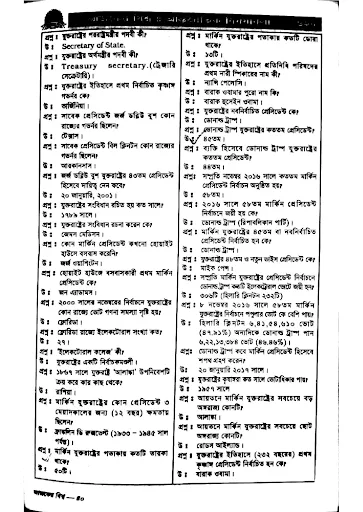 প্রশ্ন : যুক্তরাষ্ট্রের পররাষ্ট্রমন্ত্রীর পদবী কী?
উ : Secretary of State.
প্রশ্ন : যুক্তরাষ্ট্রের অর্থমন্ত্রীর পদবী কী?
উ : Treasury secretary.(ট্রেজারি
সেক্রেটারি)।
প্রশ্ন : যুক্তরাষ্ট্রের ইতিহাসে প্রথম নির্বাচিত কৃষ্ণাঙ্গ
গভর্নর কে?
উ : ভার্জিনিয়া।
প্রশ্ন : সাবেক প্রেসিডেন্ট জর্জ ডব্লিউ বুশ কোন
রাজ্যের গভর্নর ছিলেন?
উ : টেক্সাস।
প্রশ্ন : সাবেক প্রেসিডেন্ট বিল ক্লিনটন কোন রাজ্যের
গভর্নর ছিলেন?
উ : আরকানসাস।
প্রশ্ন : জর্জ ডব্লিউ বুশ যুক্তরাষ্ট্রের ৪৩তম প্রেসিডেন্ট
হিসেবে দায়িত্ব নেন কবে?
উ : ২০ জানুয়ারি, ২০০১।
প্রশ্ন : যুক্তরাষ্ট্রের সংবিধান রচিত হয় কত সালে?
উ : ১৭৮৯ সালে।
প্রশ্ন : যুক্তরাষ্ট্রের সংবিধান রচনা করেন কে?
উ : জেমস মেডিসন।
প্রশ্ন : কোন মার্কিন প্রেসিডেন্ট কখনো হোয়াইট
হাউসে বসবাস করেননি?
উ : জর্জ ওয়াশিংটন।
প্রশ্ন : হোয়াইট হাউসে বসবাসকারী প্রথম মার্কিন
প্রেসিডেন্ট কে?
উ : জন এ্যাডামস।
প্রশ্ন : ২০০০ সালের নভেম্বরের নির্বাচনে যুক্তরাষ্ট্রের
কোন রাজ্যে ভোট গণনা সমস্যা সৃষ্টি হয়?
উ : ফ্লোরিডা।
প্রশ্ন : ফ্লোরিডা রাজ্যে ইলেকটোরাল সংখ্যা কত?
উ : ২৭।
প্রশ্ন : 'ইলেকটোরাল কলেজ' কী?
উ : যুক্তরাষ্ট্রের একটি নির্বাচকমণ্ডলী।
প্রশ্ন : ১৮৬৭ সালে যুক্তরাষ্ট্র 'আলাস্কা' উপনিবেশটি
ক্রয় করে কার কাছ থেকে?
উ : রাশিয়া।
প্রশ্ন : মার্কিন যুক্তরাষ্ট্রের কোন প্রেসিডেন্ট ৩
মেয়াদকালের জন্য (১২ বছর) ক্ষমতায়
ছিলেন?
উ : ফ্রাঙ্কলিন ডি রুজভেল্ট (১৯৩৩ – ১৯৪৫ সাল
পর্যন্ত)।
প্রশ্ন : মার্কিন যুক্তরাষ্ট্রের পতাকায় কতটি তারকা
থাকে?
উ : ৫০টি।
প্রশ্ন : মার্কিন যুক্তরাষ্ট্রের পতাকায় কতটি ডোরা
থাকে?
উ : ১৩টি।
প্রশ্ন : যুক্তরাষ্ট্রের ইতিহাসে প্রতিনিধি পরিষদের
প্রথম নারী স্পিকারের নাম কী?
উ : ন্যান্সি পেলোসি।
প্রশ্ন : বারাক ওবামার পুরো নাম কি?
উ : বারাক হুসেইন ওবামা।
প্রশ্ন : যুক্তরাষ্ট্রের নবনির্বাচিত প্রেসিডেন্ট কে?
উ : ডোনাল্ড ট্রাম্প।
প্রশ্ন : ডোনাল্ড ট্রাম্প যুক্তরাষ্ট্রের কততম প্রেসিডেন্ট?
উ : ৪৫তম।
প্রশ্ন : ব্যক্তি হিসেবে ডোনাল্ড ট্রাম্প যুক্তরাষ্ট্রের
কততম প্রেসিডেন্ট?
উ : ৪৪তম।
প্রশ্ন : সম্প্রতি নভেম্বর ২০১৬ সালে কততম মার্কিন
প্রেসিডেন্ট নির্বাচন অনুষ্ঠিত হয়?
উ : ৫৮তম।
প্রশ্ন : ২০১৬ সালে ৫৮তম মার্কিন প্রেসিডেন্ট
নির্বাচনে জয়ী হয় কে?
উ : ডোনাল্ড ট্রাম্প (রিপাবলিকান পার্টি)।
প্রশ্ন : মার্কিন যুক্তরাষ্ট্রের ৪৫তম বা নবনির্বাচিত
প্রেসিডেন্ট নির্বাচিত হন কে?
উ : ডোনাল্ড ট্রাম্প।
প্রশ্ন : যুক্তরাষ্ট্রের ৪৮তম ও নতুন ভাইস প্রেসিডেন্ট কে?
উ : মাইক পেন্স।
প্রশ্ন : সম্প্রতি মার্কিন যুক্তরাষ্ট্রের প্রেসিডেন্ট নির্বাচনে
ডোনাল্ড ট্রাম্প কতটি ইলেকটোরাল ভোটে জয়ী হন?
উ : ৩০৬টি (হিলারি ক্লিনটন ২৩২টি)
প্রশ্ন : ৮ নভেম্বর ২০১৬ সালে ৫৮তম মার্কিন
যুক্তরাষ্ট্রের নির্বাচনে পপুলার ভোট কে বেশি পায়?
উ : হিলারি ক্লিনটন ৬,৪১,৫৪,৬১০ ভোট
(৪৭.৯১%) অন্যদিকে ডোনাল্ড ট্রাম্প পান
৬,২২,১৩,৩৮৪ ভোট (৪৬.৪৬%)।
প্রশ্ন : ডোনাল্ড ট্রাম্প কবে মার্কিন প্রেসিডেন্ট হিসেবে
শপথ গ্রহণ করেন?
উ : ২০ জানুয়ারি ২০১৭ সালে।
প্রশ্ন : যুক্তরাষ্ট্রে কৃষ্ণাঙ্গরা কত সালে ভোটাধিকার পায়?
উ : ১৯৫৭ সালে
প্রশ্ন : আয়তনে মার্কিন যুক্তরাষ্ট্রের সবচেয়ে বড়
অঙ্গরাজ্য কোনটি?
উ : আলাস্কা।
প্রশ্ন : আয়তনে মার্কিন যুক্তরাষ্ট্রের সবচেয়ে ছোট
অঙ্গরাজ্য কোনটি?
উ : রোডস আইল্যান্ড।
প্রশ্ন : যুক্তরাষ্ট্রের ইতিহাসে (২৩২ বছরের) প্রথম
কৃষ্ণাঙ্গ প্রেসিডেন্ট নির্বাচিত হন কে?
উ : বারাক ওবামা।
আজকের বিশ্ব—৪০